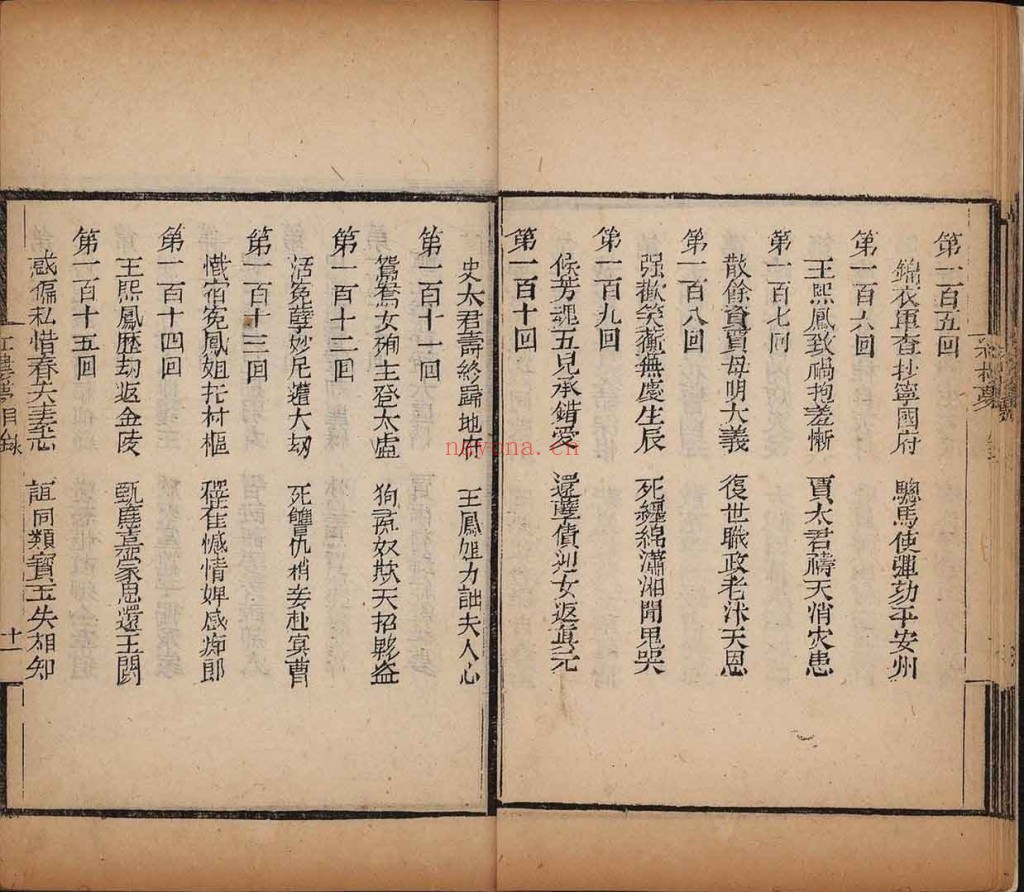 第一百五回
錦衣軍查抄寧國府 驄馬使彈劾平安州
第一百六回
王熙鳳致禍抱羞慚 賈太君禱天消灾患
第一百七回
散餘資賈母明大義 復世職政老沐天恩
第一百八回
强歡笑蘅蕪慶生辰 死纏綿瀟湘聞鬼哭
第一百九回
候芳魂五兒承錯愛 還孽債迎女返眞元
第一百十回
史太君壽終歸地府 王鳳姐力詘失人心
第一百十一回
鴛鴦女殉主登太虛 狗彘奴欺天招夥盗
第一百十二回
活冤孽妙尼遭大刼 死讐仇趙妾赴冥曹
第一百十三回
懺宿冤鳳姐托村嫗 釋舊憾情婢感痴郎
第一百十四回
王熙鳳歷刼返金陵 甄應嘉蒙恩還玉闕
第一百十五回
惑偏私惜春矢素志 証同類寶玉失相知
紅樓夢目錄 十一
nayona.cn